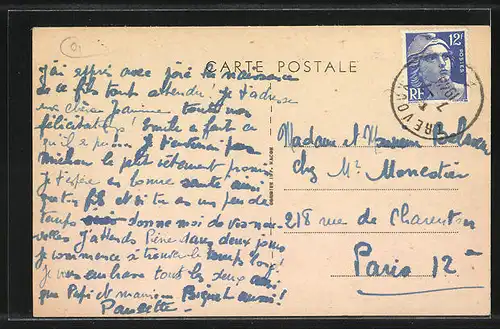 01
CARTE POSTALE
12F
POSTES
RF
J'ai appris avec joie la naissance
de ce fils tant attendu! Je t'adresse
ma chère Jeannine toutes nos
félicitations! Emile a fait ce
qu'il a pu. Je t'enverrai pour
Michou le petit vêtement promis
J'espère en bonne santé ainsi
que ton fils et si tu as un peu de
temps donne moi de vos nou-
velles j'attends Pierre dans deux jours
je commence à trouver le temps long!
Je vous embrasse tous les deux ainsi
que Papi et mamie. Biquet aussi!
Paulette
Madame et Monsieur
chez Mr Monestier
218 rue de Charenton
Paris 12e